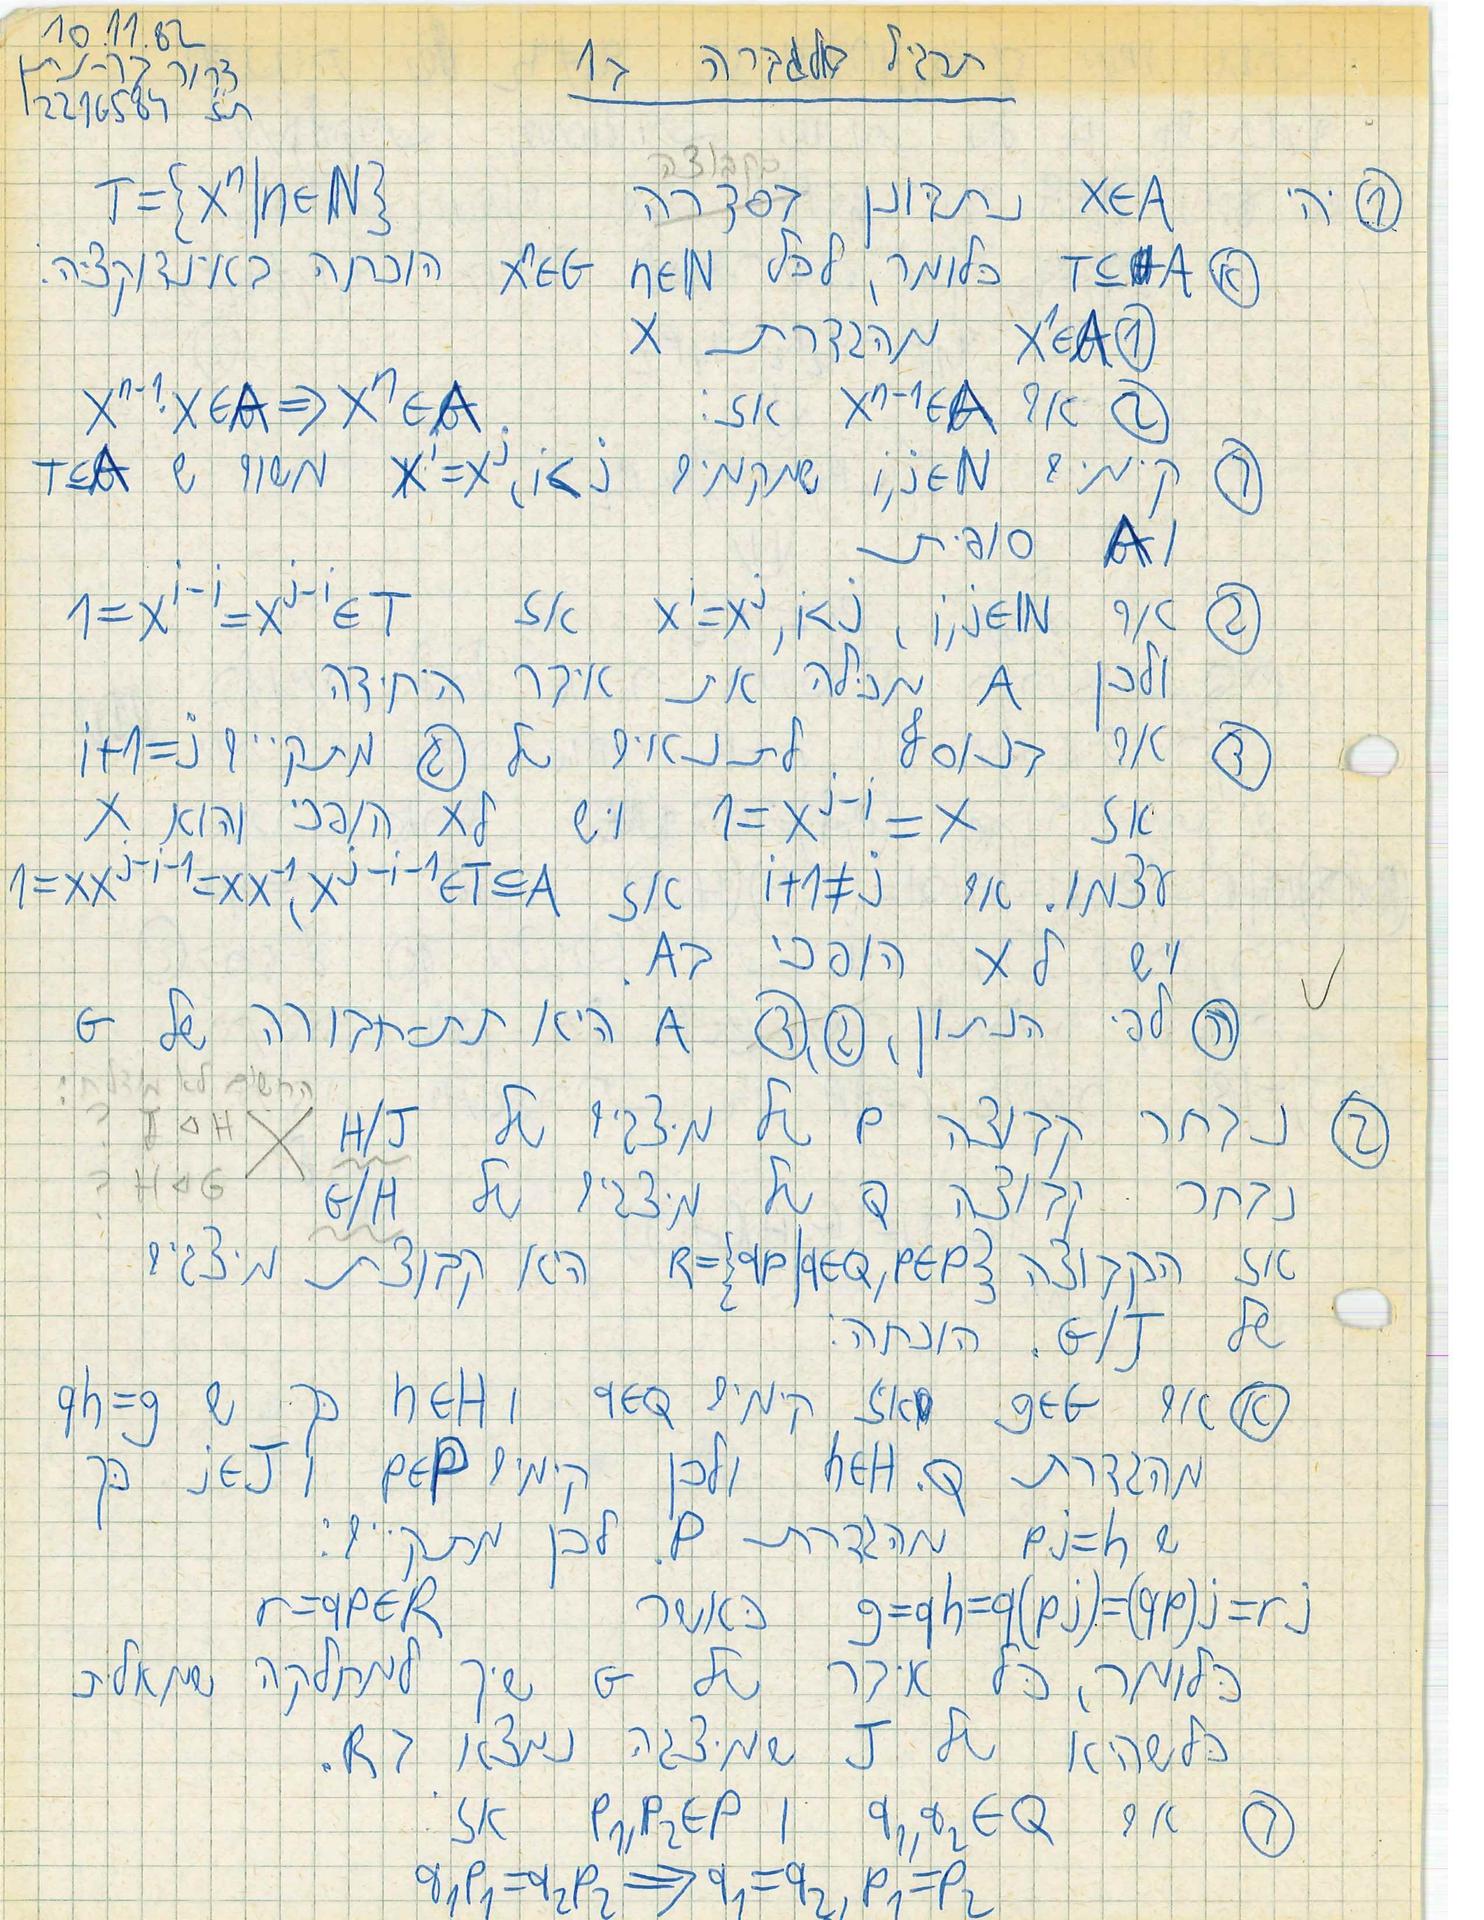 10.11.82
דרור בר-נתן
ת.ז 2216584
תרגיל באלגברה ב1
בקבוצה
① יהי x∈A נתבונן בסדרה T={xⁿ|n∈ℕ}
Ⓐ T⊆A כלומר, לכל n∈ℕ xⁿ∈G הוכחה באינדוקציה:
① x¹∈A מהגדרת x
② אם xⁿ⁻¹∈A אז: xⁿ⁻¹·x∈A⇒xⁿ∈A.
ⓑ קימים i,j∈ℕ שמקימים i<j, xⁱ=xʲ משום ש T⊆A
וA סופית
ⓖ אם i,j∈ℕ, i<j, xⁱ=xʲ אז 1=xⁱ⁻ⁱ=xʲ⁻ⁱ∈T
ולכן A מכילה את איבר היחידה
ⓓ אם בנוסף לתנאים של ⓖ מתקיים i+1=j
אז 1=xʲ⁻ⁱ=x ויש לx הופכי והוא x
עצמו. אם i+1≠j אז 1=xxʲ⁻ⁱ⁻¹=xx⁻¹, xʲ⁻ⁱ⁻¹∈T⊆A
ויש לx הופכי בA.
ⓗ לפי הנתון, ⓖ, ⓓ A היא תת-חבורה של G
② נבחר קבוצה P של מיצגים של H/J
J◁H ?
נבחר קבוצה Q של מיצגים של G/H
H◁G ?
אז הקבוצה R={qp|q∈Q,p∈P} היא קבוצת מיצגים
של G/J. הוכחה:
Ⓐ אם g∈G אז קימים q∈Q וh∈H כך ש qh=g
מהגדרת Q. h∈H ולכן קימים p∈P וj∈J כך
ש pj=h מהגדרת P. לכן מתקיים:
g=qh=q(pj)=(qp)j=rj כאשר r=qp∈R
כלומר, כל איבר של G שיך למחלקה שמאלית
כלשהיא של J שמיצגה נמצא בR.
ⓑ אם q₁,q₂∈Q וp₁,p₂∈P אז:
q₁p₁=q₂p₂⇒q₁=q₂, p₁=p₂